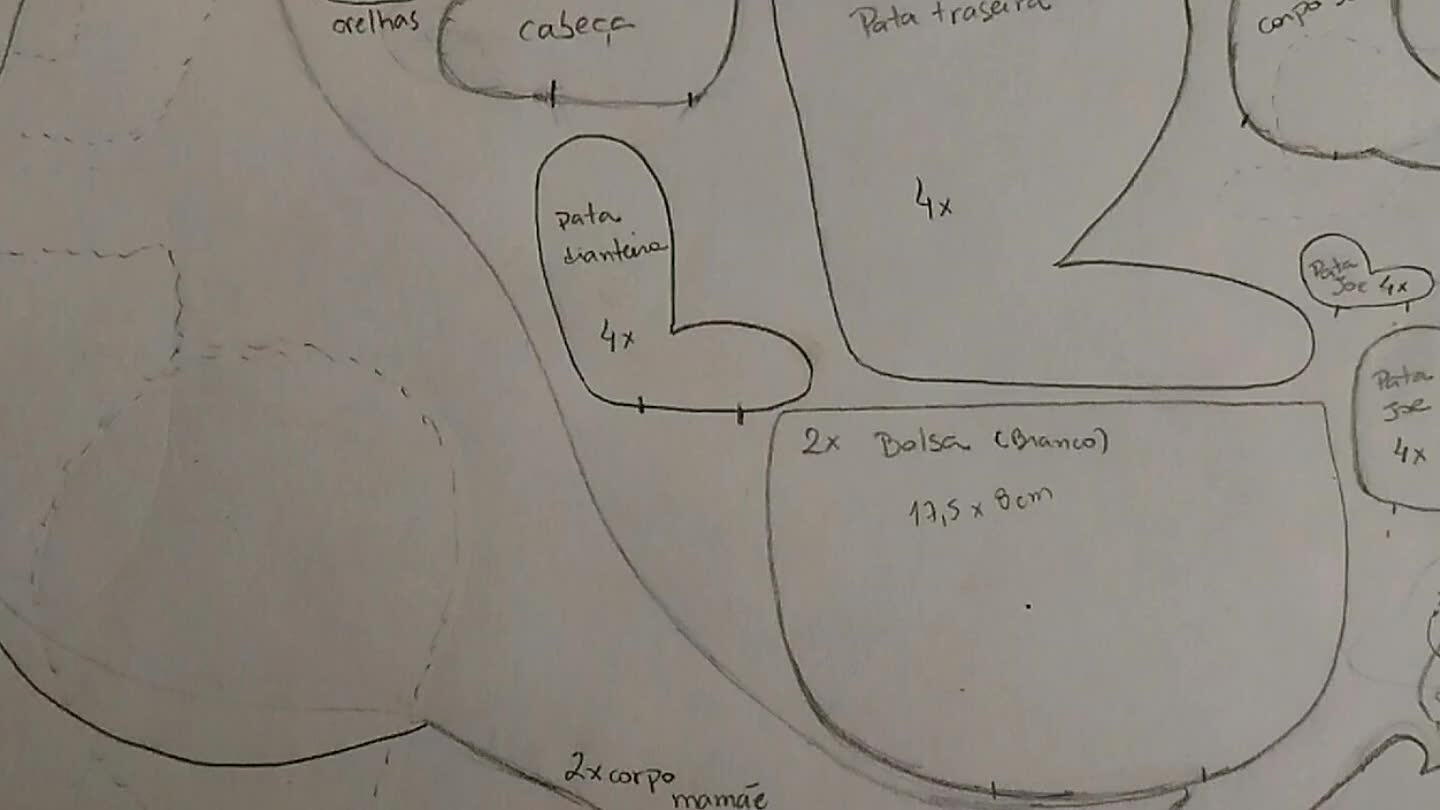 orelhas
cabeça
Pata traseira
corpo
pata
dianteira
4x
4x
Pata
Joe 4x
Pata
Joe
4x
2x Bolsa (Branco)
17,5 x 8cm
2x corpo
mamãe